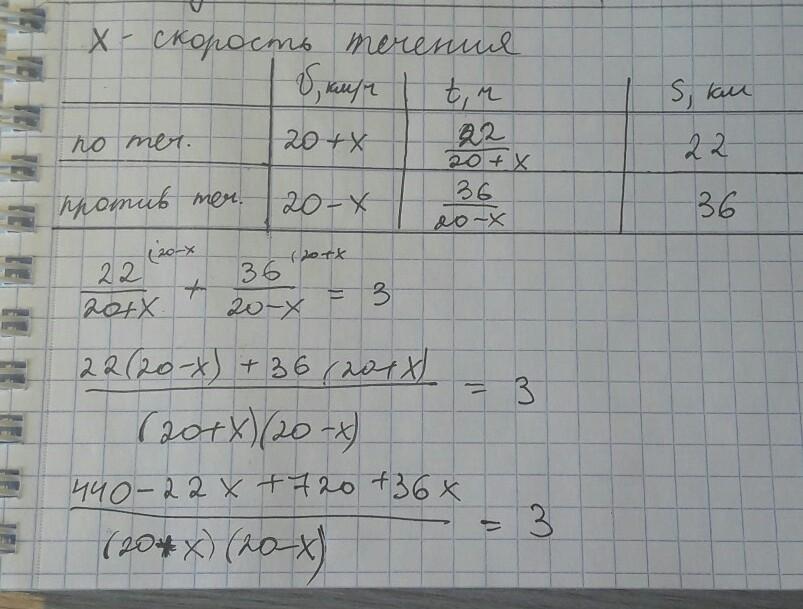 x - скорость течения
v, км/ч t, ч S, км
по теч. 20+x 22/(20+x) 22
против теч. 20-x 36/(20-x) 36
22/(20+x) (20-x + 36/(20-x) (20+x = 3
(22(20-x) + 36(20+x))/((20+x)(20-x)) = 3
(440-22x+720+36x)/((20+x)(20-x)) = 3